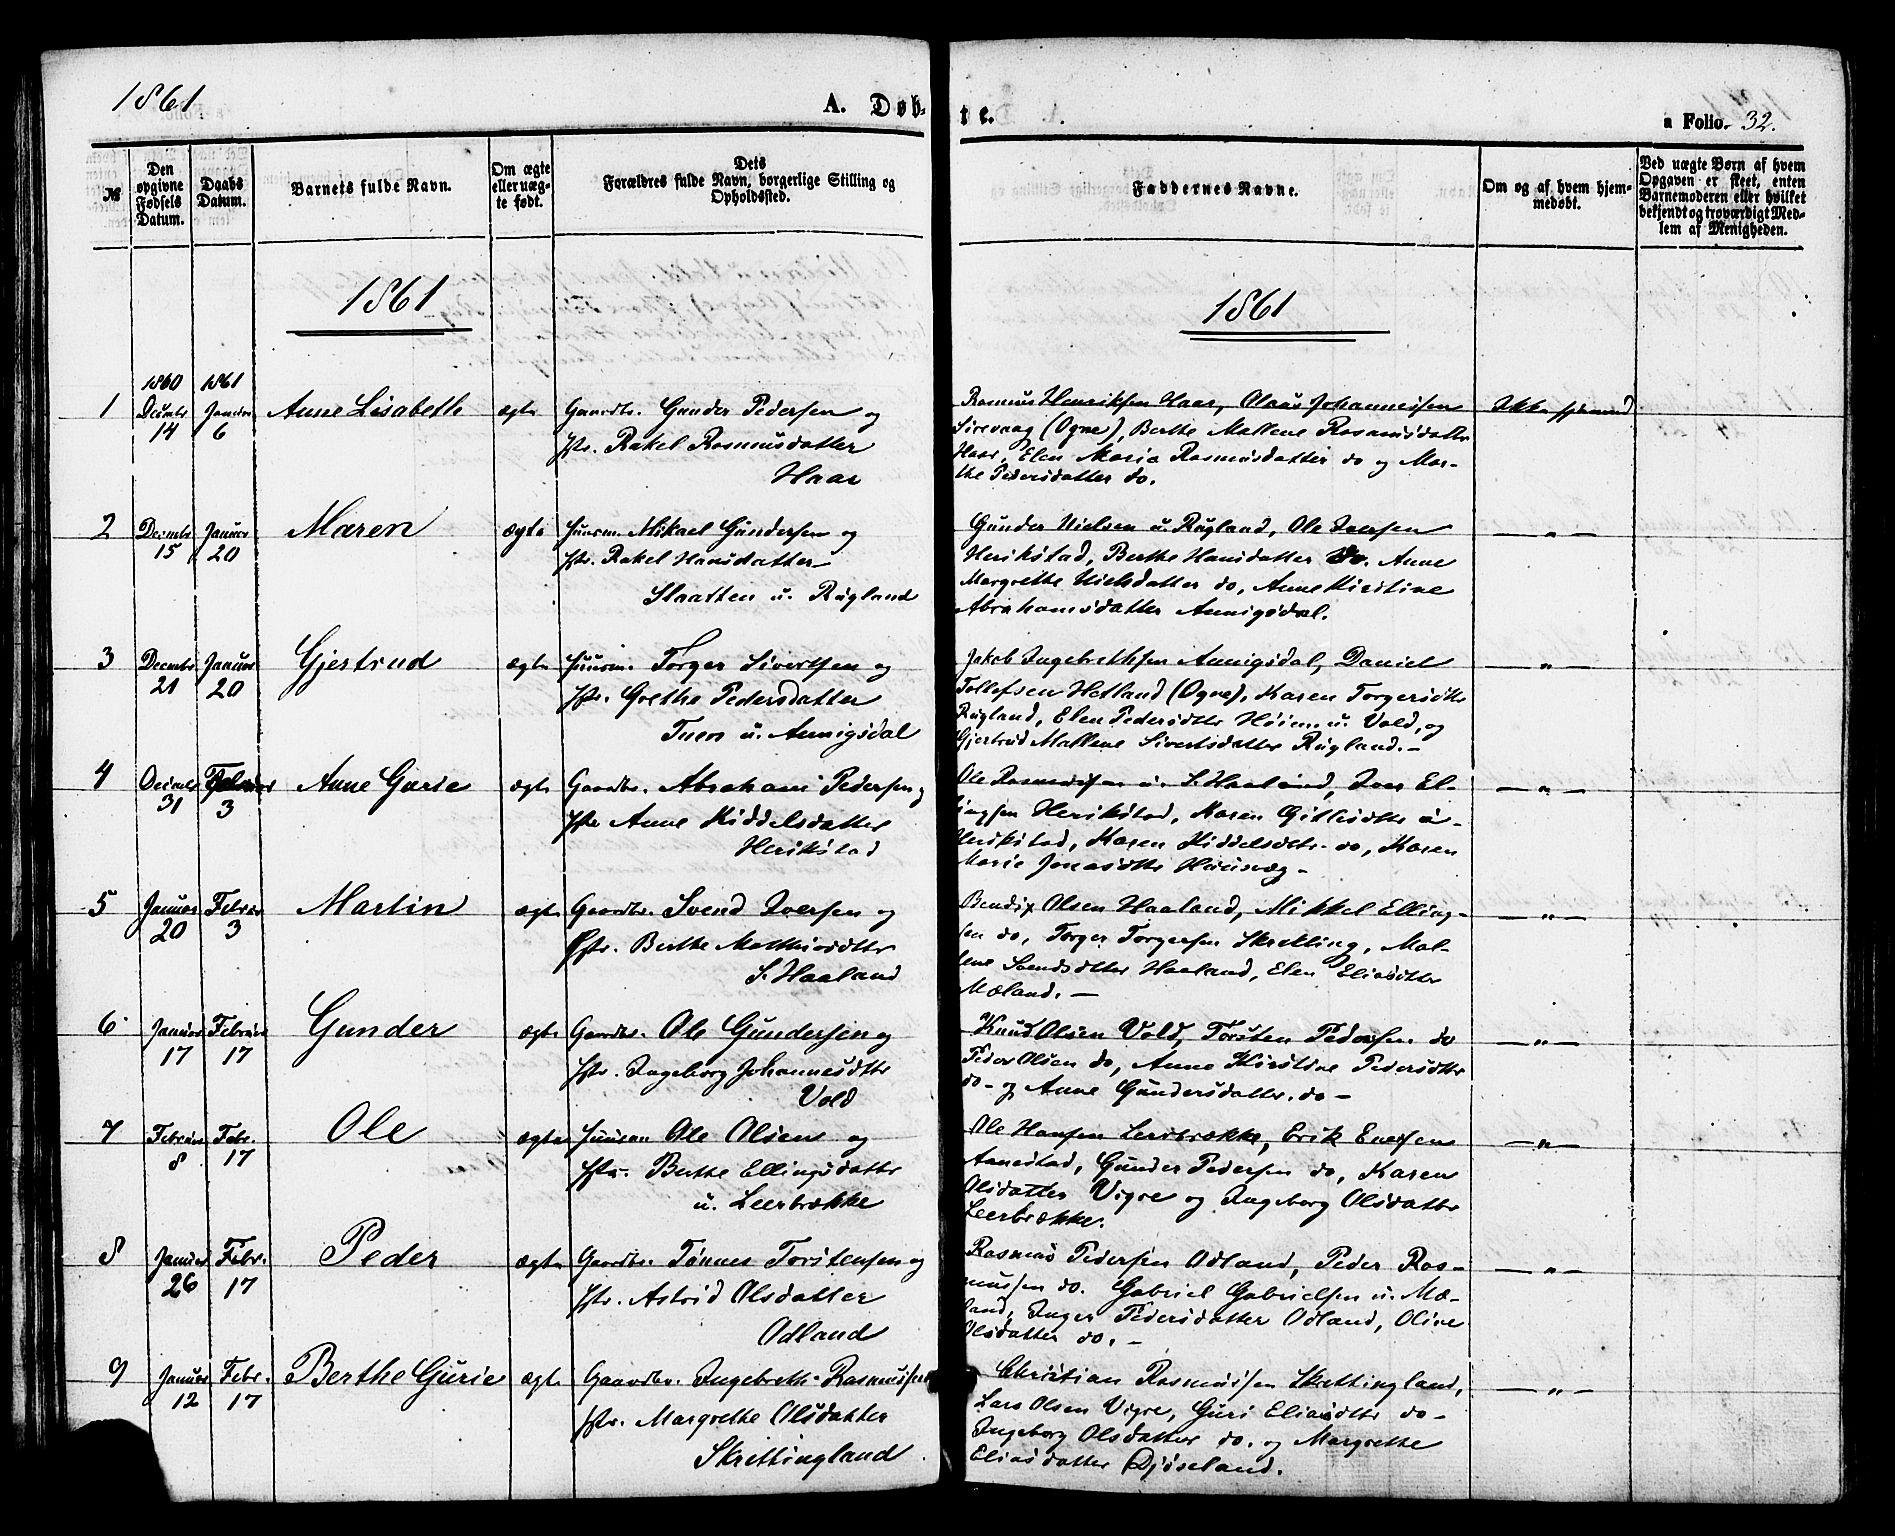 1861
A. Døb-
te.
a Folio. 32.
№
Den opgivne Fødsels Datum.
Daabs Datum.
Barnets fulde Navn.
Om ægte eller uægte født.
Dets Forældres fulde Navn, borgerlige Stilling og Opholdssted.
Faddernes Navne.
Om og af hvem hjemmedøbt.
Ved uægte Børn af hvem Opgaven er skeet, enten Barnemoderen eller hvilket bekjendt og troværdigt Medlem af Menigheden.
1861
1861
1860 1861
1 Decmbr 14 Januar 6 Anne Lisabeth ægte Gaardbr. Gunder Pedersen og
Hstr. Rakel Rasmusdatter
Haar
Rasmus Henriksen Haar, Olaus Johannessen
Sirevaag (Ogne), Berthe Mallene Rasmusdatter
Haar, Elen Maria Rasmusdatter do og Mar-
the Pedersdatter do.
Ikke hjemmed
2 Decmbr 15 Januar 20 Maren ægte Huusm. Mikael Gundersen og
Hstr. Rakel Hansdatter
Slaatten u. Rugland
Gunder Nielsen u. Rugland, Ole Iversen
Herikstad, Berthe Hansdatter do. Anne
Margrethe Nielsdatter do, Anne Kirstine
Abrahamsdatter Aunigsdal.
— " —
3 Decmbr 21 Januar 20 Gjertrud ægte Huusm. Torger Sivertsen og
Hstr. Grethe Pedersdatter
Tuen u. Aunigsdal
Jakob Ingebrethsen Aunigsdal, Daniel
Tollefsen Hetland (Ogne), Karen Torgersdtr
Rugland, Elen Pedersdtr Høien u. Vold, og
Gjertrud Mallene Sivertsdatter Rugland. —
— " —
4 Decmbr 31 Februar 3 Anne Gurie ægte Gaardbr. Abraham Pedersen og
Hstr Anne Kiddelsdatter
Herikstad
Ole Rasmussen u. S. Haaland, Iver El-
lingsen Herikstad, Karen Gitlesdtr u-
Herikstad, Karen Kiddelsdtr. do, Karen
Marie Jonasdtr
— " —
5 Januar 20 Februar 3 Martin ægte Gaardbr. Svend Iversen og
Hstr. Berthe Mathiasdtr
S. Haaland
Bendix Olsen Haaland, Mikkel Elling-
sen do, Torger Torgersen Skretting, Mal-
lene Svendsdtter Haaland, Elen Eliasdtr
Mæland. —
— " —
6 Januar 17 Februar 17 Gunder ægte Gaardbr. Ole Gundersen og
Hstr. Ingeborg Johannesdtr
Vold
Knud Olsen Vold, Torsten Pedersen do
Peder Olsen do, Anne Kirstine Pedersdtr
do - og Anne Gundersdatter. do —
— " —
7 Februar 8 Febr. 17 Ole ægte Huusm Ole Olsen og
Hstr. Berthe Ellingsdatter
u. Leerbrække
Ole Hansen Leerbrække, Erik Evensen
Aanestad, Gunder Pedersen do, Karen
Olsdatter Vigre og Ingeborg Olsdatter
Leerbrække.
— " —
8 Januar 26 Febr. 17 Peder ægte Gaardbr. Tønnes Torstensen og
Hstr. Astrid Olsdatter
Odland
Rasmus Pedersen Odland, Peder Ras-
mussen do. Gabriel Gabrielsen u. Mæ-
land, Inger Pedersdatter Odland, Oline
Olsdatter do. —
— " —
9 Januar 12 Febr. 17 Berthe Gurie ægte Gaardbr. Ingebreth Rasmussen
Hstr. Margrethe Olsdatter
Skrettingland
Christian Rasmussen Skrettingland,
Lars Olsen Vigre, Guri Eliasdtr do -
Ingeborg Olsdatter do. og Margrethe
Eliasdatter Djøseland.
— " —